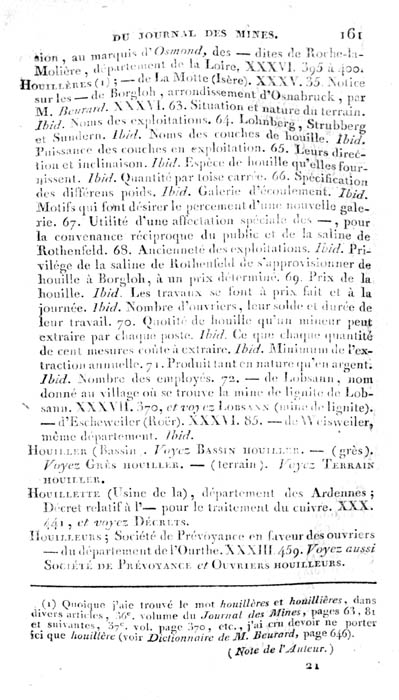 DU JOURNAL DES MINES. 161
sion, au marquis d'Osmond, des — dites de Roche-la-
Molière, département de la Loire. XXXVI. 395 à 400.
HOUILLÈRES (1); — de La Motte (Isère). XXXV. 35. Notice
sur les — de Borgloh, arrondissement d'Osnabruck, par
M. Beurard. XXXVI. 63. Situation et nature du terrain.
Ibid. Noms des exploitations. 64. Lohnberg, Strubberg
et Sundern. Ibid. Noms des couches de houille. Ibid.
Puissance des couches en exploitation. 65. Leurs direc-
tion et inclinaison. Ibid. Espèce de houille qu'elles four-
nissent. Ibid. Quantité par toise carrée. 66. Spécification
des différens poids. Ibid. Galerie d'écoulement. Ibid.
Motifs qui font désirer le percement d'une nouvelle gale-
rie. 67. Utilité d'une affectation spéciale des —, pour
la convenance réciproque du public et de la saline de
Rothenfeld. 68. Ancienneté des exploitations. Ibid. Pri-
vilége de la saline de Rothenfeld de s'approvisionner de
houille à Borgloh, à un prix déterminé. 69. Prix de la
houille. Ibid. Les travaux se font à prix fait et à la
journée. Ibid. Nombre d'ouvriers, leur solde et durée de
leur travail. 70. Quotité de houille qu'un mineur peut
extraire par chaque poste. Ibid. Ce que chaque quantité
de cent mesures coûte à extraire. Ibid. Minimum de l'ex-
traction annuelle. 71. Produit tant en nature qu'en argent.
Ibid. Nombre des employés. 72. — de Lobsann, nom
donné au village où se trouve la mine de lignite de Lob-
sann. XXXVII. 370, et voyez LOBSANN (mine de lignite).
— d'Escheweiler (Roër). XXXVI. 85. — de Weisweiler,
même département. Ibid.
HOUILLER (Bassin . Voyez BASSIN HOUILLER. — (grès).
Voyez GRÈS HOUILLER. — (terrain). Voyez TERRAIN
HOUILLER.
HOUILLETTE (Usine de la), département des Ardennes;
Décret relatif à l'— pour le traitement du cuivre. XXX.
441, et voyez DÉCRETS.
HOUILLEURS; Société de Prévoyance en faveur des ouvriers
— du département de l'Ourthe. XXXIII. 459. Voyez aussi
SOCIÉTÉ DE PRÉVOYANCE et OUVRIERS HOUILLEURS.
(1) Quoique j'aie trouvé le mot houillères et houillières, dans
divers articles, 36e. volume du Journal des Mines, pages 63, 81
et suivantes, 37e. vol. page 370, etc., j'ai cru devoir ne porter
ici que houillère (voir Dictionnaire de M. Beurard, page 646).
(Note de l'Auteur.)
21